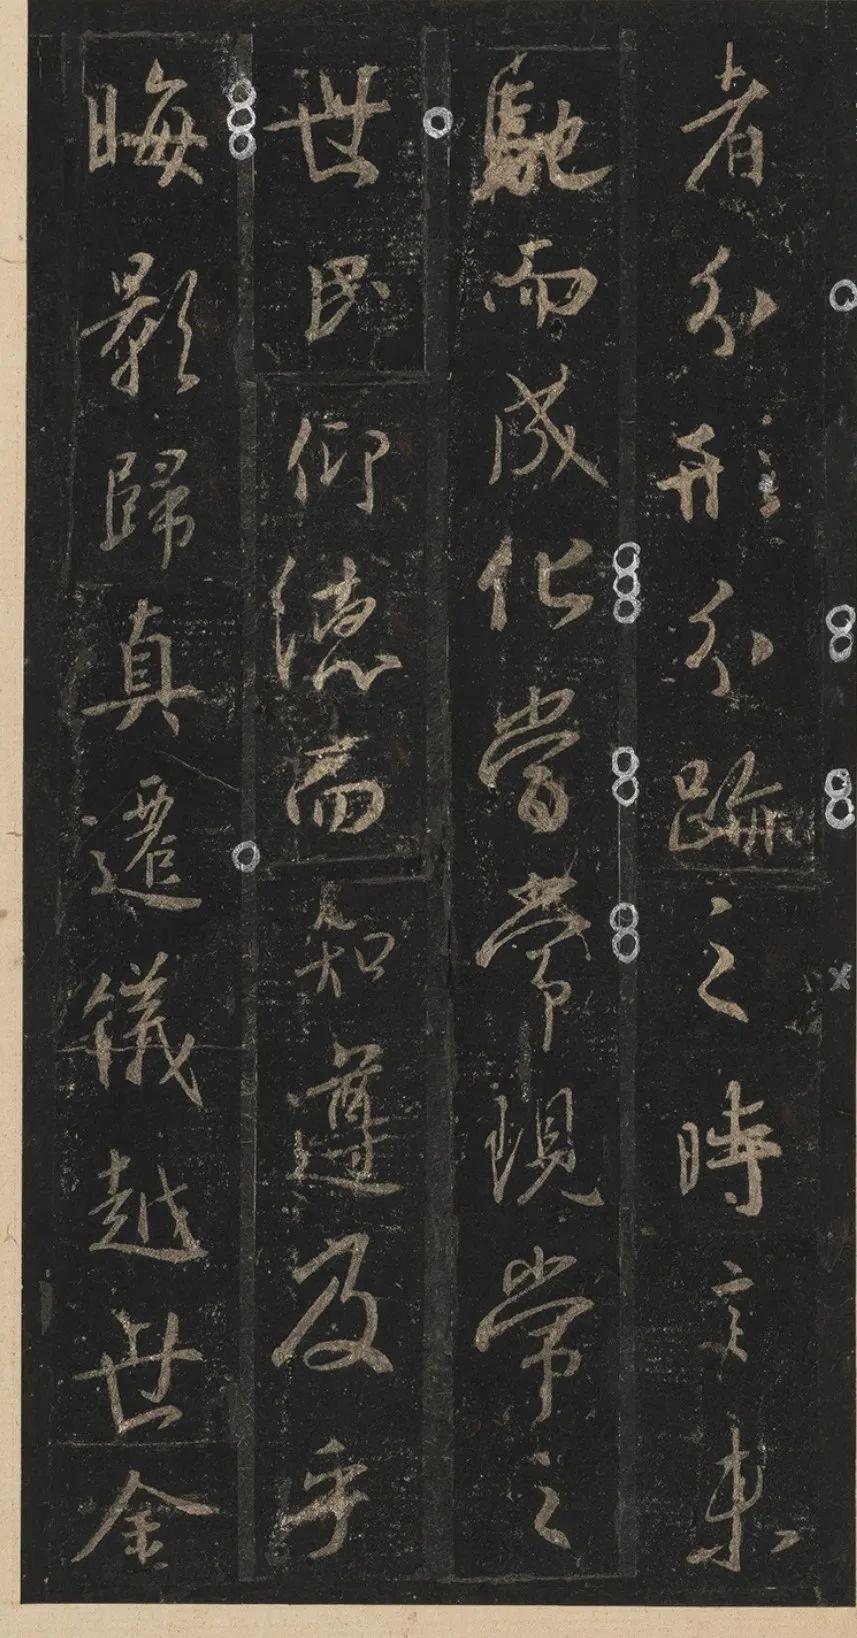 者分形分跡之時言未
馳而成化當常現常之
世民仰德而知遵及乎
晦影歸真遷儀越世金